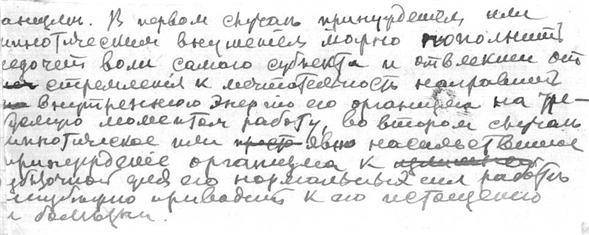 анизм. В первом случае принуждением или
гипнотическим внушением можно пополнить
недочет воли самого субъекта и отвлекши от
стремления к мечтательность направить
внутреннюю энергию его организма на тре-
буемую моментом работу, во втором случае
гипнотическое или явно насильственное
принуждение организма к
избыточной для его нормальных сил работе
приводит к его истощению
и болезни.